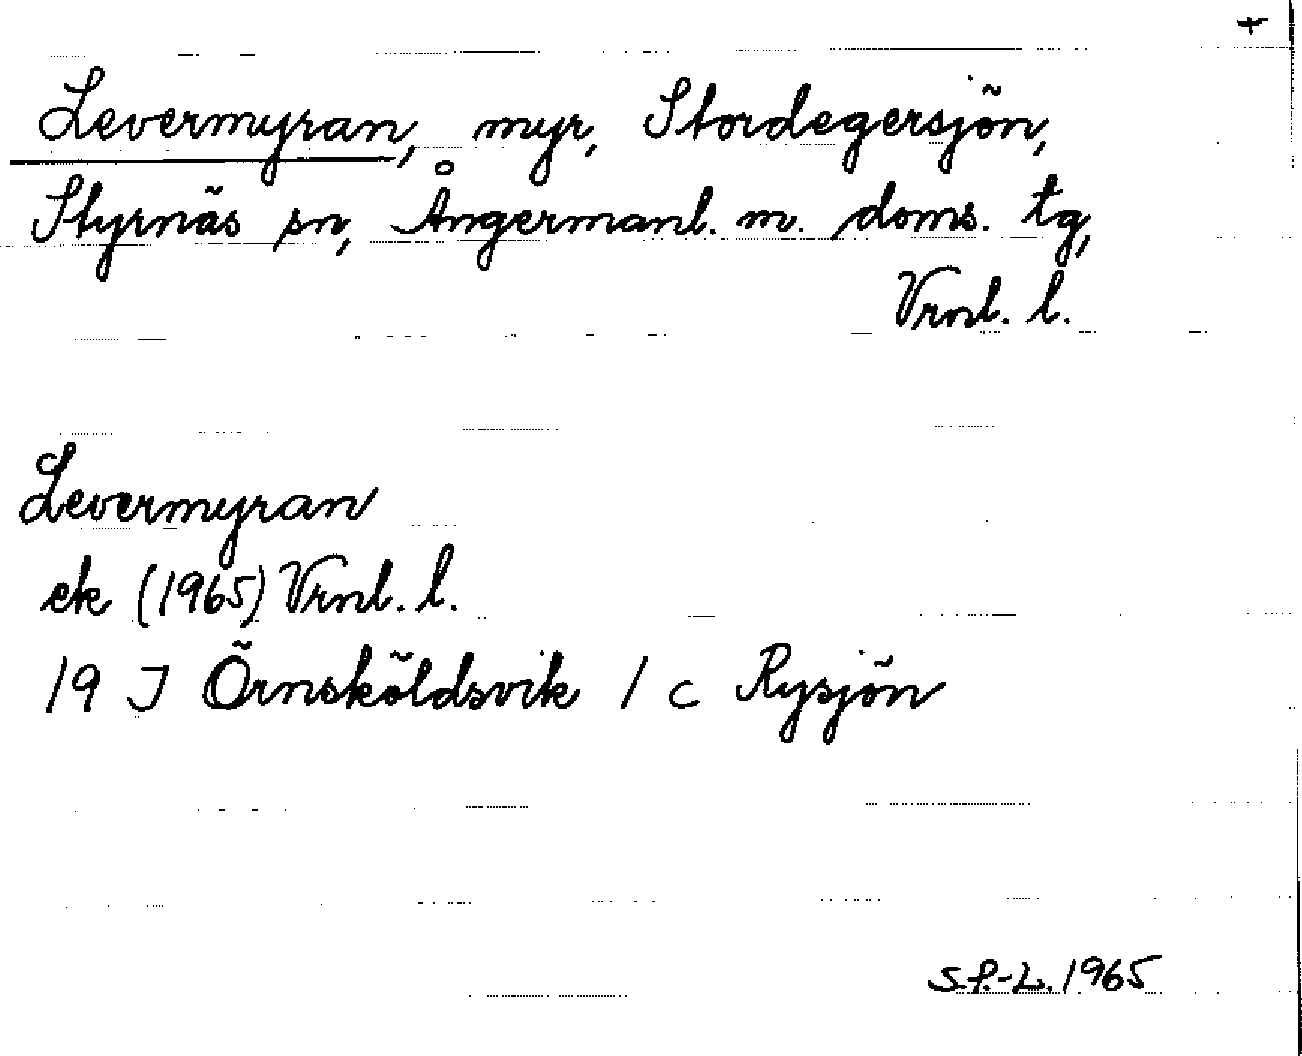 +
Levermyran, myr, Stordegersjön,
Styrnäs sn, Ångermanl. m. doms. tg,
Vrnl. l.
Levermyran
ek (1965) Vrnl. l.
19 J Örnsköldsvik 1 c Rysjön
S.P.-L. 1965